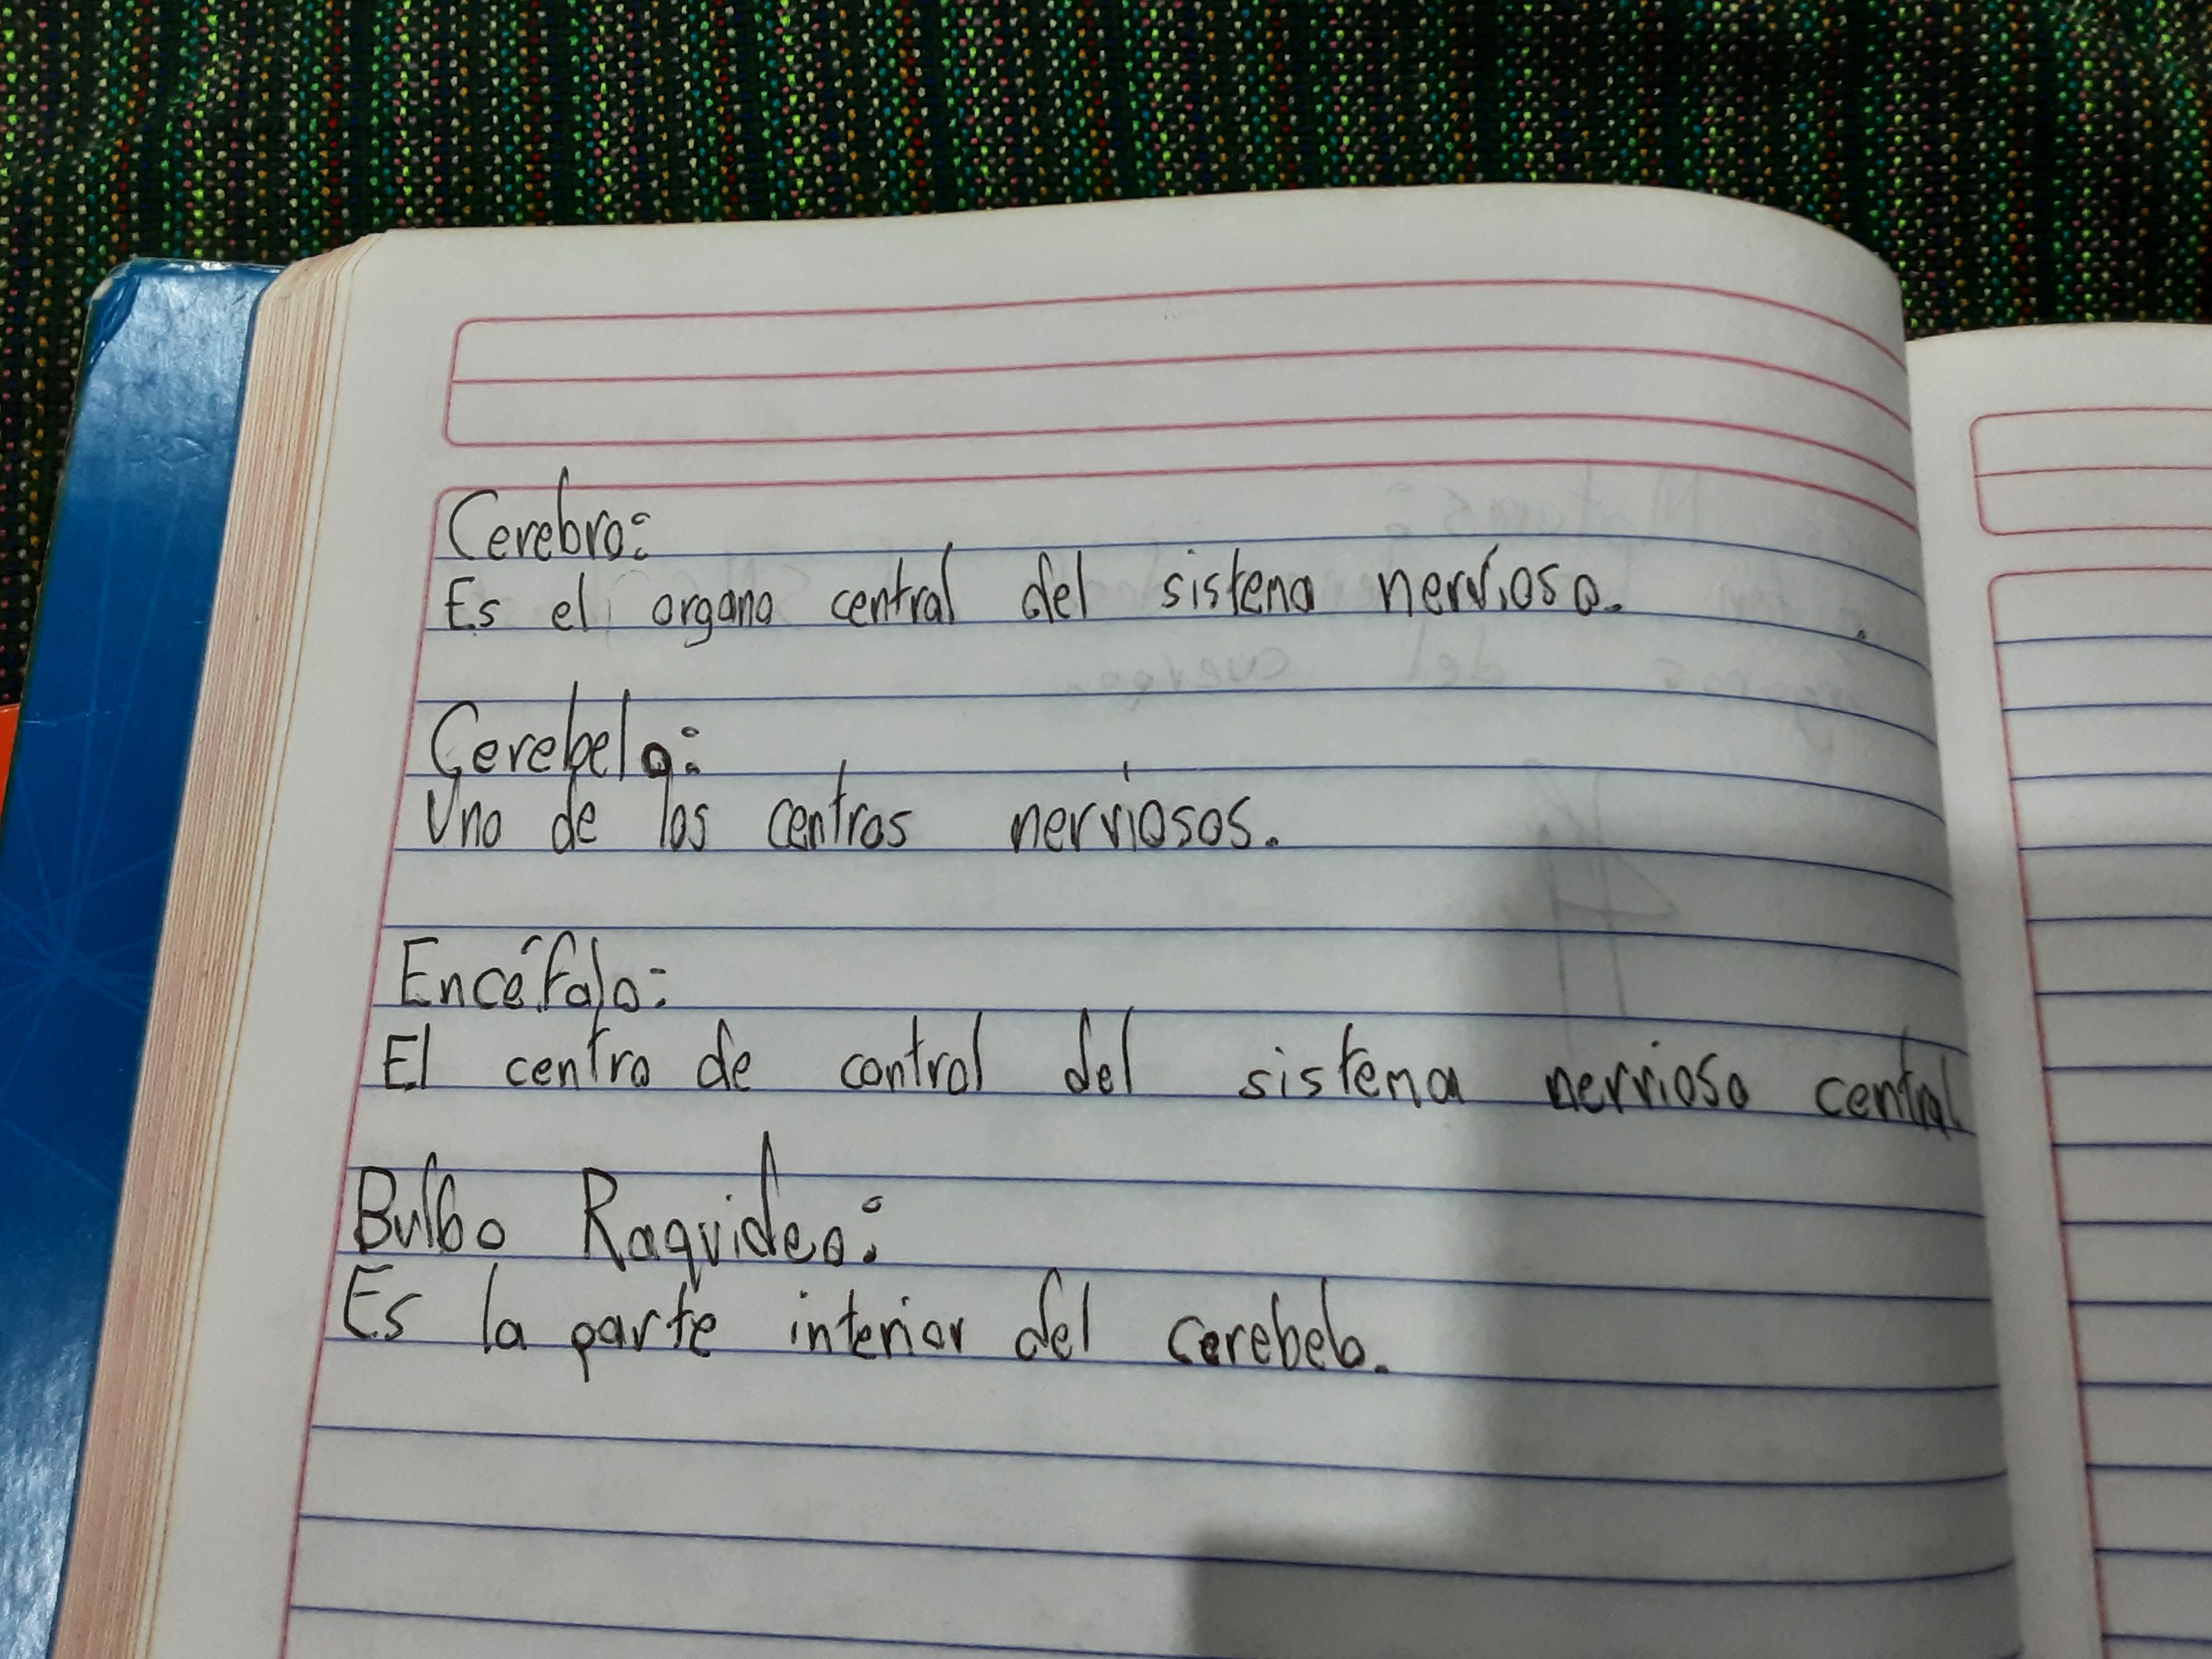 Cerebro:
Es el organo central del sistema nervioso.
Cerebelo:
Uno de los centros nerviosos.
Encéfalo:
El centro de control del sistema nervioso central
Bulbo Raquideo:
Es la parte interior del cerebelo.